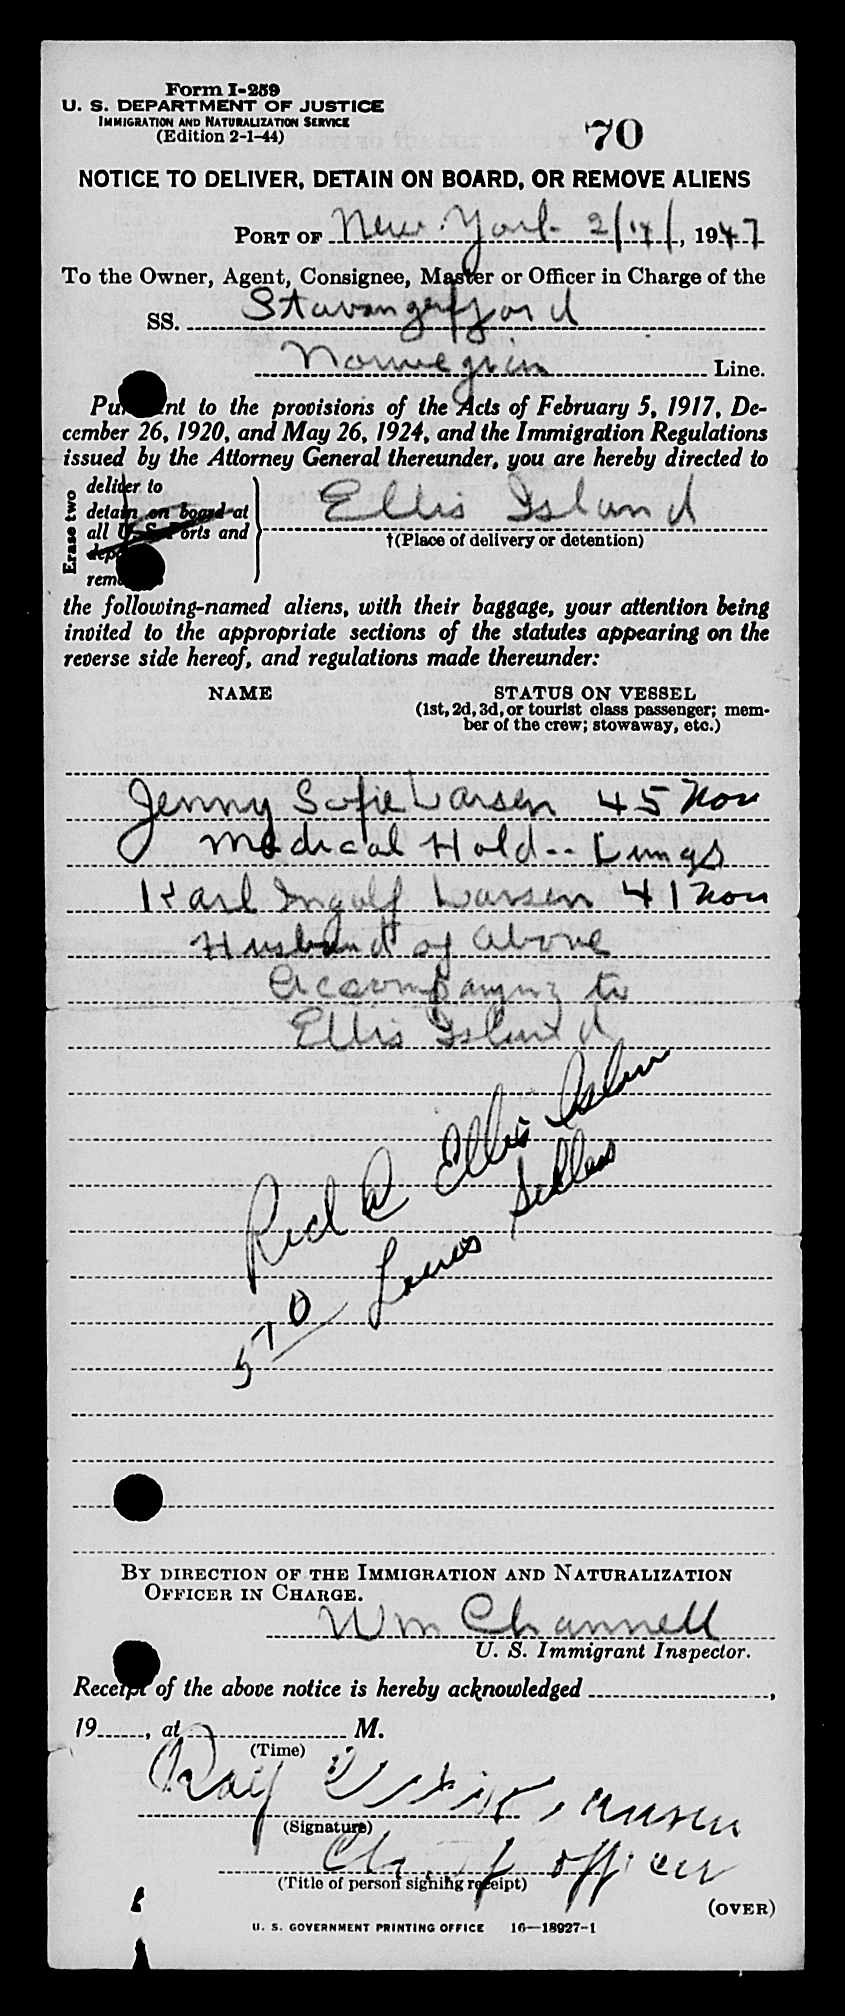 Form I-259
U. S. DEPARTMENT OF JUSTICE
IMMIGRATION AND NATURALIZATION SERVICE
(Edition 2-1-44)
70
NOTICE TO DELIVER, DETAIN ON BOARD, OR REMOVE ALIENS
PORT OF New York 2/14/, 1947
To the Owner, Agent, Consignee, Master or Officer in Charge of the
SS. Stavangerfjord
Norwegian Line.
Pu nt to the provisions of the Acts of February 5, 1917, De-
cember 26, 1920, and May 26, 1924, and the Immigration Regulations
issued by the Attorney General thereunder, you are hereby directed to
Erase two
deliver to
detain on board at
all U.S. Ports and
dep
rem
Ellis Island
†(Place of delivery or detention)
the following-named aliens, with their baggage, your attention being
invited to the appropriate sections of the statutes appearing on the
reverse side hereof, and regulations made thereunder:
NAME STATUS ON VESSEL
(1st, 2d, 3d, or tourist class passenger; mem-
ber of the crew; stowaway, etc.)
Jenny Sofie Larsen 45 Nor
Medical Hold -- Lungs
Karl Ingolf Larsen 41 Nor
Husband of above
accompanying to
Ellis Island
Recd @ Ellis Islan
570 Louis
BY DIRECTION OF THE IMMIGRATION AND NATURALIZATION
OFFICER IN CHARGE.
Wm Channell
U. S. Immigrant Inspector.
Receipt of the above notice is hereby acknowledged ,
19 , at M.
(Time)
(Signature)
Chief officer
(Title of person signing receipt)
(OVER)
U. S. GOVERNMENT PRINTING OFFICE 16—18927-1